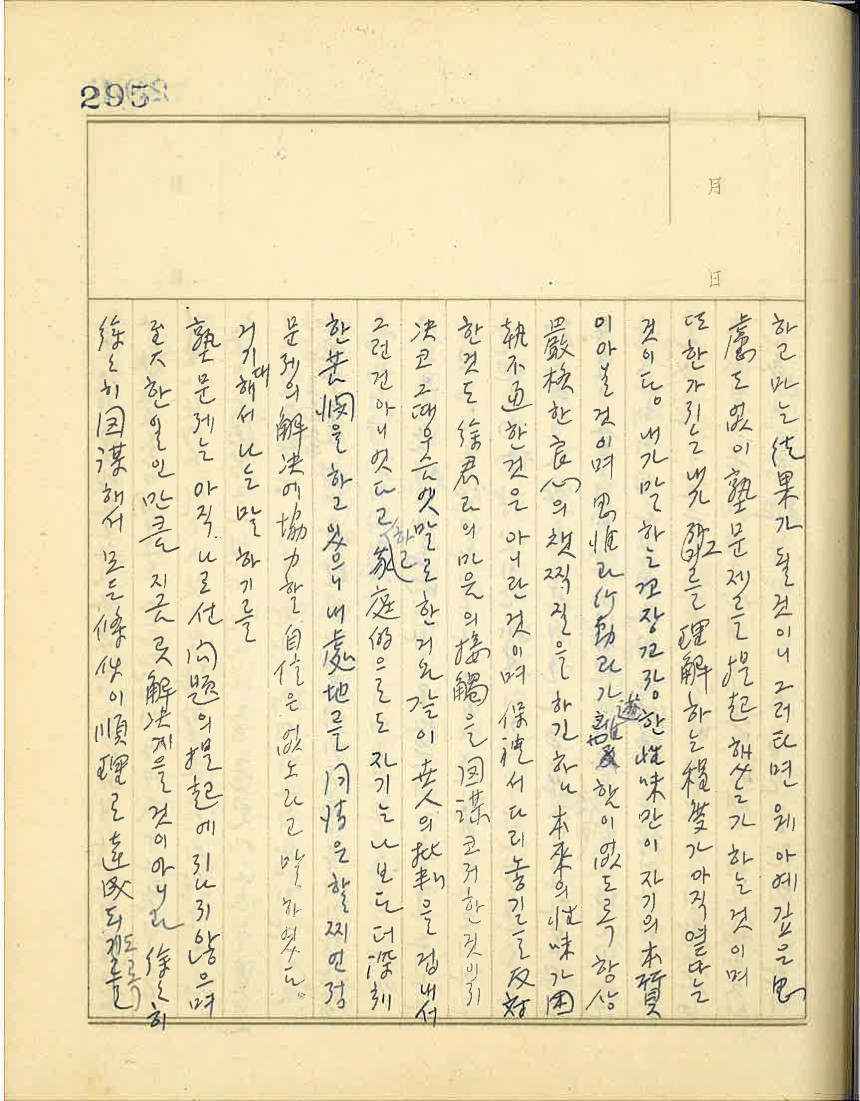 295
月
日
하고 마는 結果가 될 것이니 그러타면 웨 아예 깊은 思
慮도 없이 塾 문제를 提起했는가 하는 것이며
또 한가지는 내가 를 理解하는 程度가 아직 옅다는
것이다。 내가 말하는 긴장 긴장한 性味만이 자기의 本質
이 아닐 것이며 思惟과 行動과가 함이 없도록 항상
嚴格한 良心의 챗찍질을 하긴 하나 本來의 性味가 困
執不通한 것은 아니란 것이며 保種서 다리 놓기를 反対
한 것도 徐君 의 마음의 接觸을 図謀코저 한 것이지
决코 그때 우슴엣 말로 한 거와 같이 世人의 批判을 겁내서
그런건 아니엇다고 하고 家庭的으로도 자기는 나보다 더 深刻
한 苦悶을 하고 있으니 내 處地를 同情은 할찌언정
문제의 解决에 協力할 自信은 없노라고 말하였다。
거기 대해서 나는 말하기를
塾 문제는 아직 나로선 问題의 提起에 지나지 않으며
至大한 일인 만큼 지금 곳 解决지을 것이 아니라 徐々히
徐々히 図謀해서 모든 條件이 順理로 達成되도록